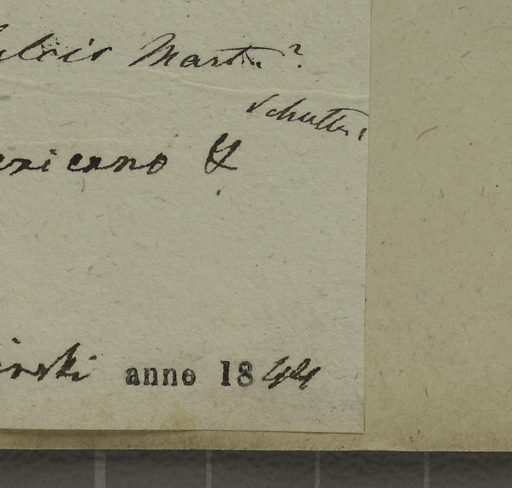 dulcis Mart. ?
Schultes
exicano &
inski anno 1844